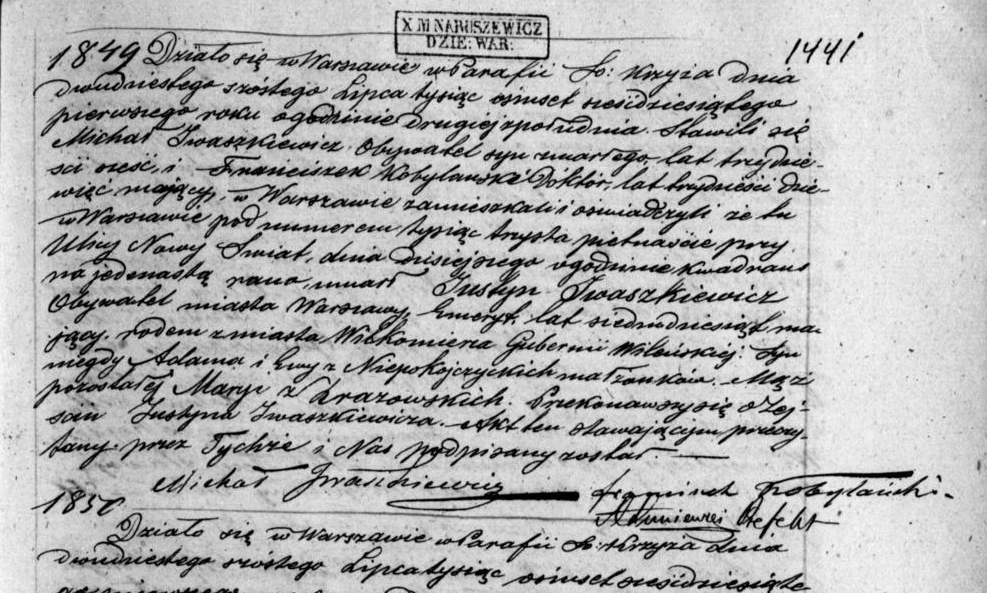 X M NARUSZEWICZ
DZIE: WAR:
1441
1849 Działo się w Warszawie w Parafii Sº: Krzyża dnia
dwudziestego szóstego Lipca tysiąc ośmset sześdziesiątego
pierwszego roku o godzinie drugiej z południa. Stawili się
Michał Iwaszkiewicz Obywatel syn zmarłego, lat trzydzie-
ści sześć, i Franciszek Kobylański Doktór, lat trzydzieści dzie-
więć mający, w Warszawie zamieszkali i oświadczyli że tu
w Warszawie pod numerem tysiąc trzysta piętnaście przy
Ulicy Nowy Świat, dnia dzisiejszego o godzinie kwadrans
na jedenastą rano, umarł Justyn Iwaszkiewicz
Obywatel miasta Warszawy, Emeryt, lat siedmdziesiąt ma-
jący, rodem z miasta Wiłkomierza Gubernii Wileńskiej: Syn
niegdy Adama i Ewy z Niepokojczyckich małżonków. Mąż
pozostałej Maryi z Drazowskich. Przekonawszy się o Zej-
ściu Justyna Iwaszkiewicza. Akt ten stawającym przeczy-
tany przez Tychże i Nas podpisany został
Michał Iwaszkiewicz Franciszek Kobylański
1850
Działo się w Warszawie w Parafii Sº: Krzyża dnia
dwudziestego szóstego Lipca tysiąc ośmset sześdziesiąte